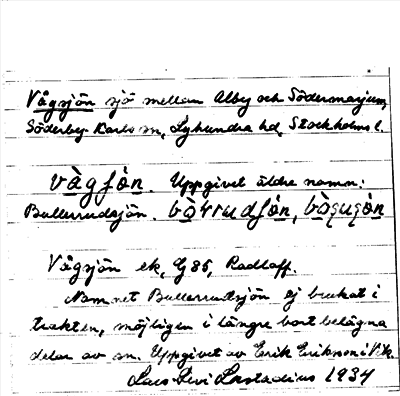 Vågsjön sjö mellan Alby och Södermarjum,
Söderby-Karls sn, Lyhundra hd, Stockholms l.
vàgfòn. Uppgivet äldre namn:
Bullerrudsjön.
Vågsjön ek, G 85, Radloff.
Namnet Bullerrudsjön ej brukat i
trakten, möjligen i längre bort belägna
delar av sn. Uppgivet av Erik Erikson i Vik.
Lars Levi Læstadius 1934